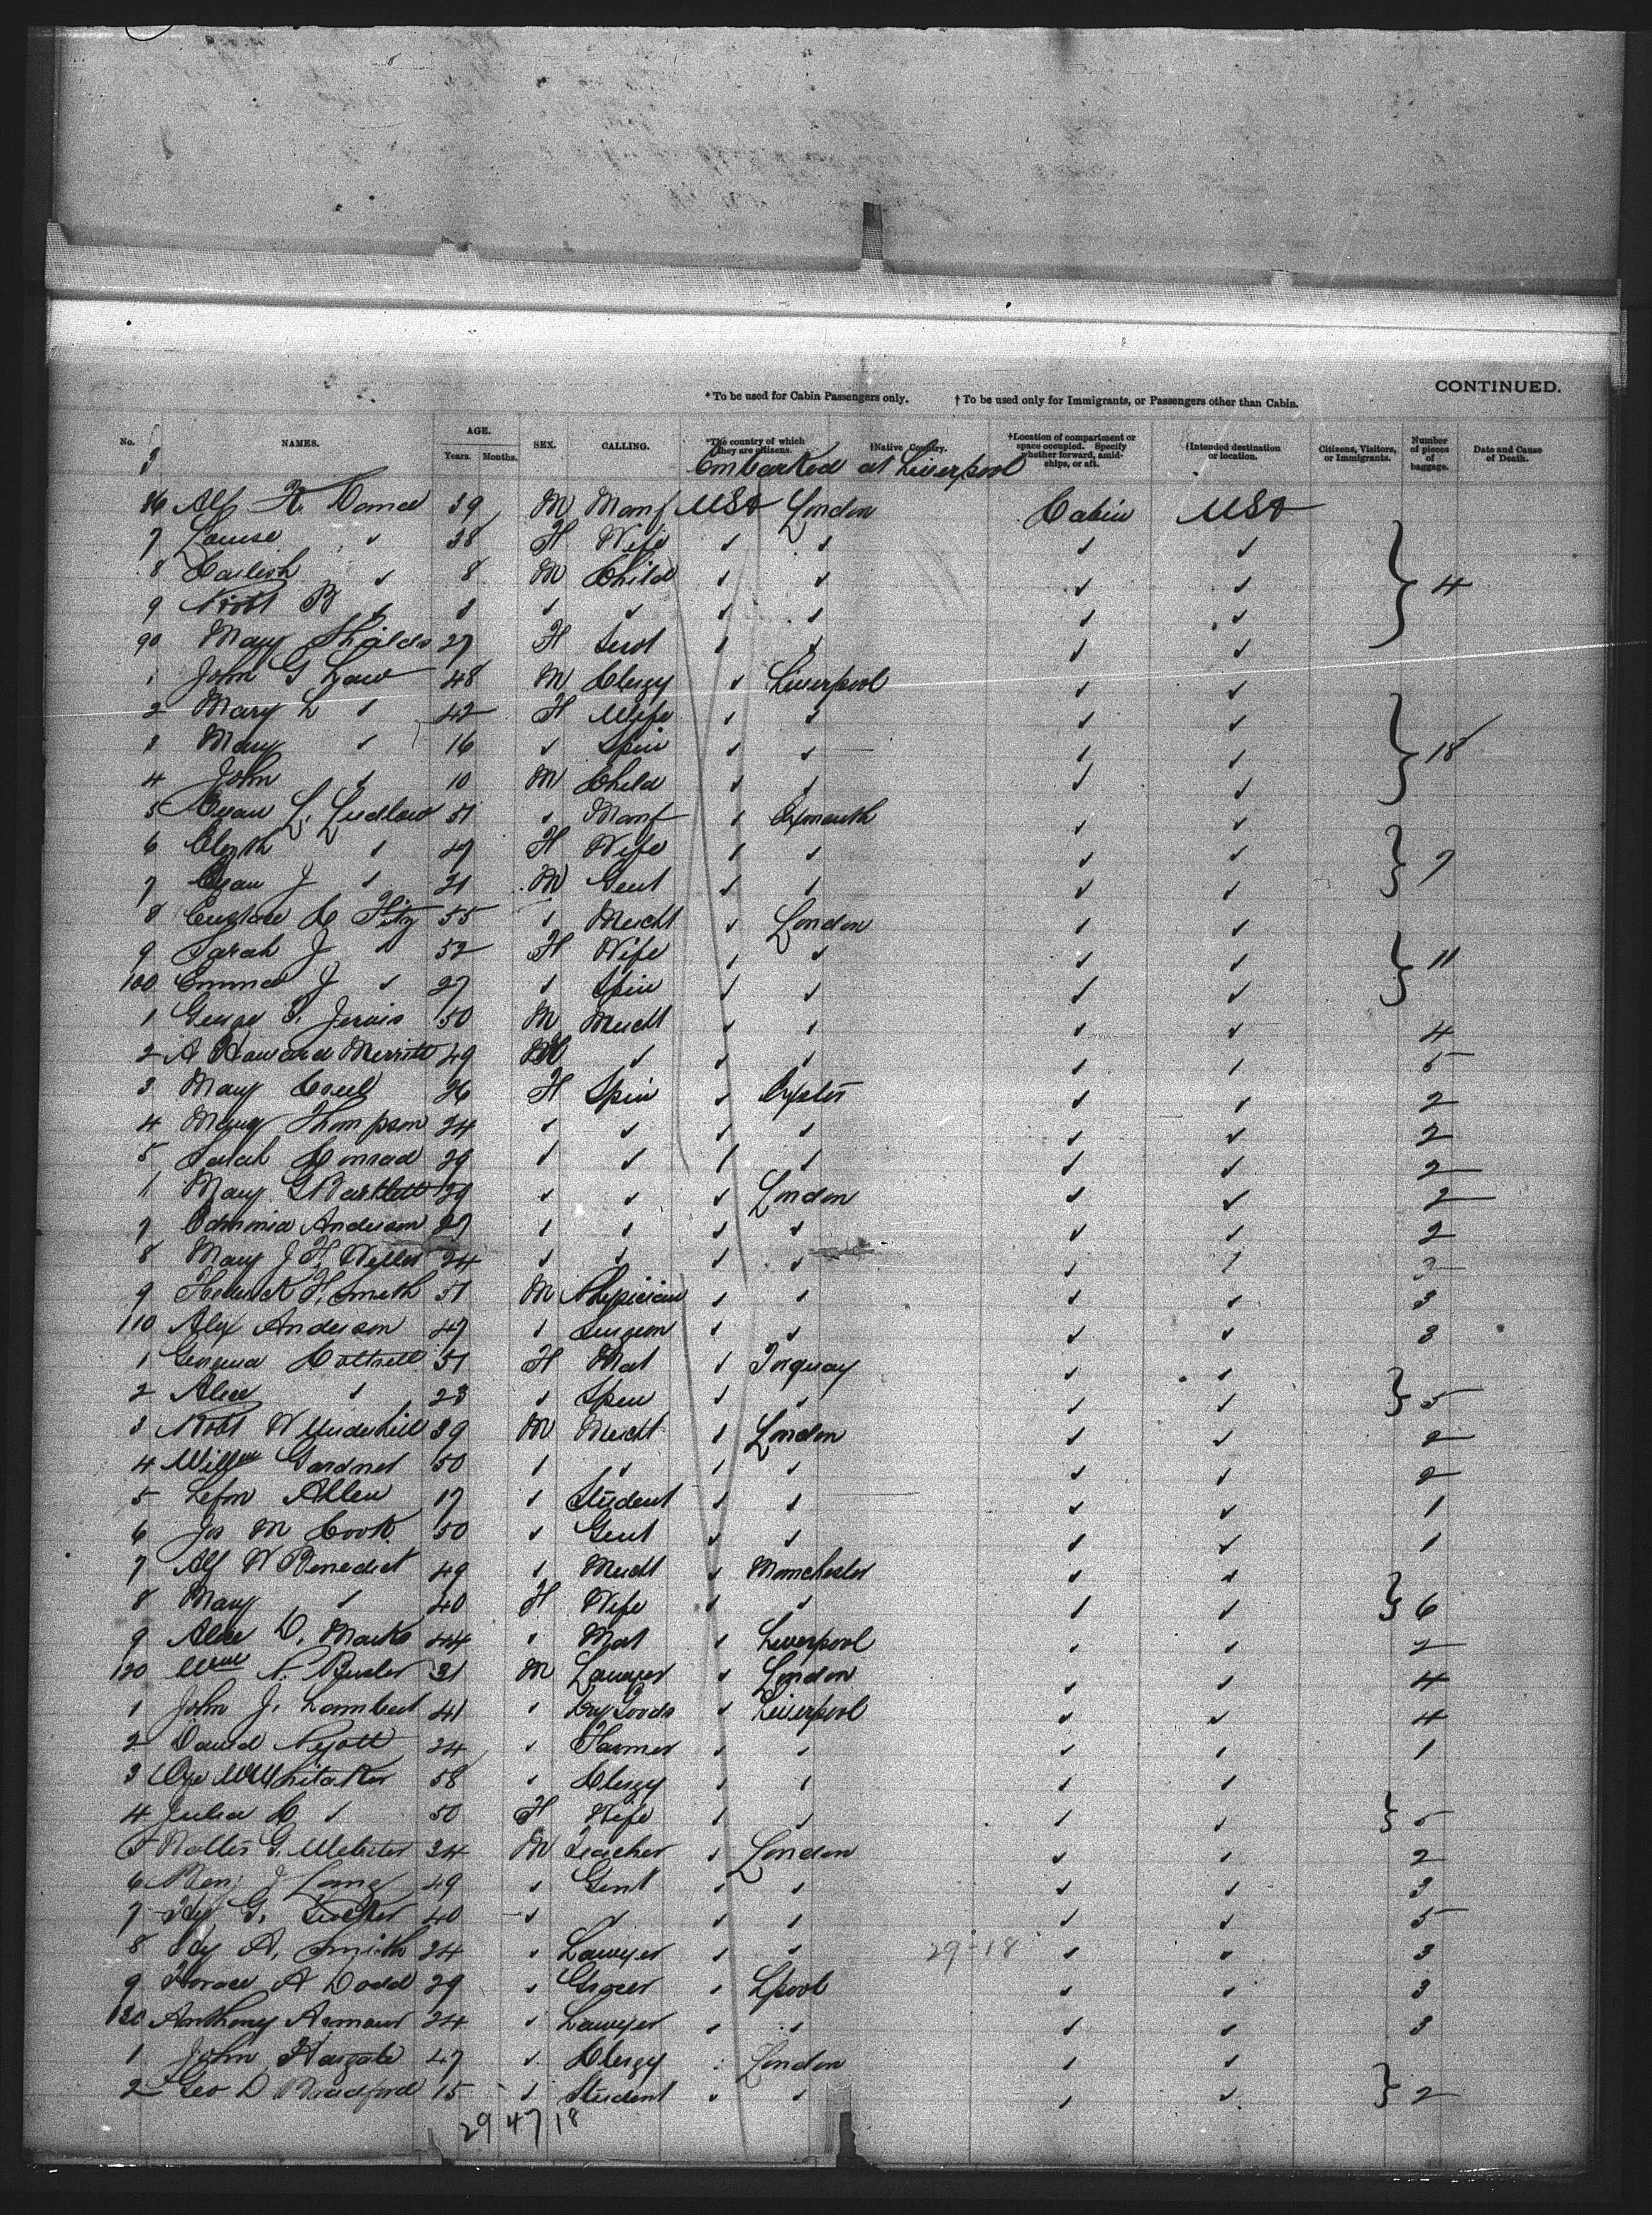 CONTINUED.
*To be used for Cabin Passengers only. †To be used only for Immigrants, or Passengers other than Cabin.
No. NAMES. AGE. Years. Months. SEX. CALLING. *The country of which they are citizens. †Native Country. †Location of compartment or space occupied. Specify whether forward, amidships, or aft. †Intended destination or location. Citizens, Visitors, or Immigrants. Number of pieces of baggage. Date and Cause of Death.
3 Embarked at Liverpool
86 Alf R. 39 M Manf USA London Cabin USA
7 Louise ✓ 38 F Wife ✓ ✓ ✓ ✓
8 ✓ 8 M Child ✓ ✓ ✓ ✓ } 4
9 Robt B ✓ 3 ✓ ✓ ✓ ✓ ✓ ✓
90 Mary Shields 27 F Servt ✓ ✓ ✓ ✓
1 John G Law 48 M Clergy ✓ Liverpool ✓ ✓
2 Mary L ✓ 42 F Wife ✓ ✓ ✓ ✓
3 Mary ✓ 16 ✓ Spin ✓ ✓ ✓ ✓ } 18
4 John ✓ 10 M Child ✓ ✓ ✓ ✓
5 L. Ludlow 51 ✓ Manf ✓ Exmouth ✓ ✓
6 Elizth ✓ 47 F Wife ✓ ✓ ✓ ✓ } 7
7 J ✓ 21 M Gent ✓ ✓ ✓ ✓
8 Eustace C Fitz 55 ✓ Mercht ✓ London ✓ ✓
9 Sarah J ✓ 52 F Wife ✓ ✓ ✓ ✓ } 11
100 Emma J ✓ 27 ✓ Spin ✓ ✓ ✓ ✓
1 George S. Jervis 50 M Mercht ✓ ✓ ✓ ✓ 4
2 A Howard Merritt 49 M ✓ ✓ ✓ ✓ ✓ 5
3 Mary 26 F Spin ✓ Exeter ✓ ✓ 2
4 Mary Thompson 24 ✓ ✓ ✓ ✓ ✓ ✓ 2
5 Sarah Conrad 29 ✓ ✓ ✓ ✓ ✓ ✓ 2
1 Mary G Bartlett 29 ✓ ✓ ✓ London ✓ ✓ 2
7 Edmonia Anderson 27 ✓ ✓ ✓ ✓ ✓ ✓ 2
8 Mary J. F. Weller 24 ✓ ✓ ✓ ✓ ✓ ✓
9 Frederick F. Smith 51 M Physician ✓ ✓ ✓ ✓ 3
110 Alex Anderson 47 ✓ Surgeon ✓ ✓ ✓ ✓ 3
1 Georgina Cottrell 51 F Mat ✓ Torquay ✓ ✓
2 Alice ✓ 23 ✓ Spin ✓ ✓ ✓ ✓ } 5
3 Robt W Underhill 39 M Mercht ✓ London ✓ ✓ 2
4 Willm Gardner 50 ✓ ✓ ✓ ✓ ✓ ✓ 2
5 Allen 17 ✓ Student ✓ ✓ ✓ ✓ 1
6 Jos M Cook 50 ✓ Gent ✓ ✓ ✓ ✓ 1
7 Alf W Benedict 49 ✓ Mercht ✓ Manchester ✓ ✓
8 Mary ✓ 40 F Wife ✓ ✓ ✓ ✓ } 6
9 Alice D. Marks 44 ✓ Mat ✓ Liverpool ✓ ✓ 2
120 Wm N. 31 M Lawyer ✓ London ✓ ✓ 4
1 John J. Lambert 41 ✓ Dry Goods ✓ Liverpool ✓ ✓ 4
2 David 24 ✓ Farmer ✓ ✓ ✓ ✓ 1
3 Whitaker 58 ✓ Clergy ✓ ✓ ✓ ✓
4 Julia C ✓ 50 F Wife ✓ ✓ ✓ ✓ } 5
5 Walter G. Webster 34 M Teacher ✓ London ✓ ✓ 2
6 Benj J Lang 49 ✓ Gent ✓ ✓ ✓ ✓ 3
7 Hy G. 40 ✓ ✓ ✓ ✓ ✓ ✓ 5
8 Hy A. Smith 24 ✓ Lawyer ✓ ✓ 29-18 ✓ ✓ 3
9 Horace A Dodd 29 ✓ Grocer ✓ Lpool ✓ ✓ 3
130 Anthony Armour 24 ✓ Lawyer ✓ ✓ ✓ ✓ 3
1 John Hargate 47 ✓ Clergy ✓ London ✓ ✓
2 Geo D Bradford 15 ✓ Student ✓ ✓ ✓ ✓ } 2
29 47 18